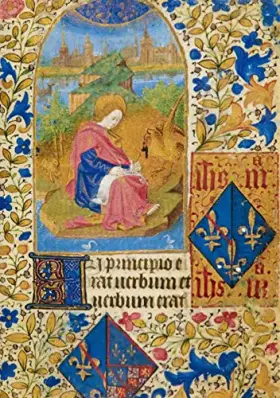 ihs
ihs
IN principio e
rat uerbum et
uerbum erat